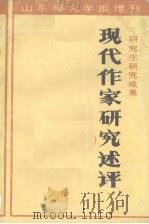 山东师大学报增刊
研究生研究成果
现代作家研究述评